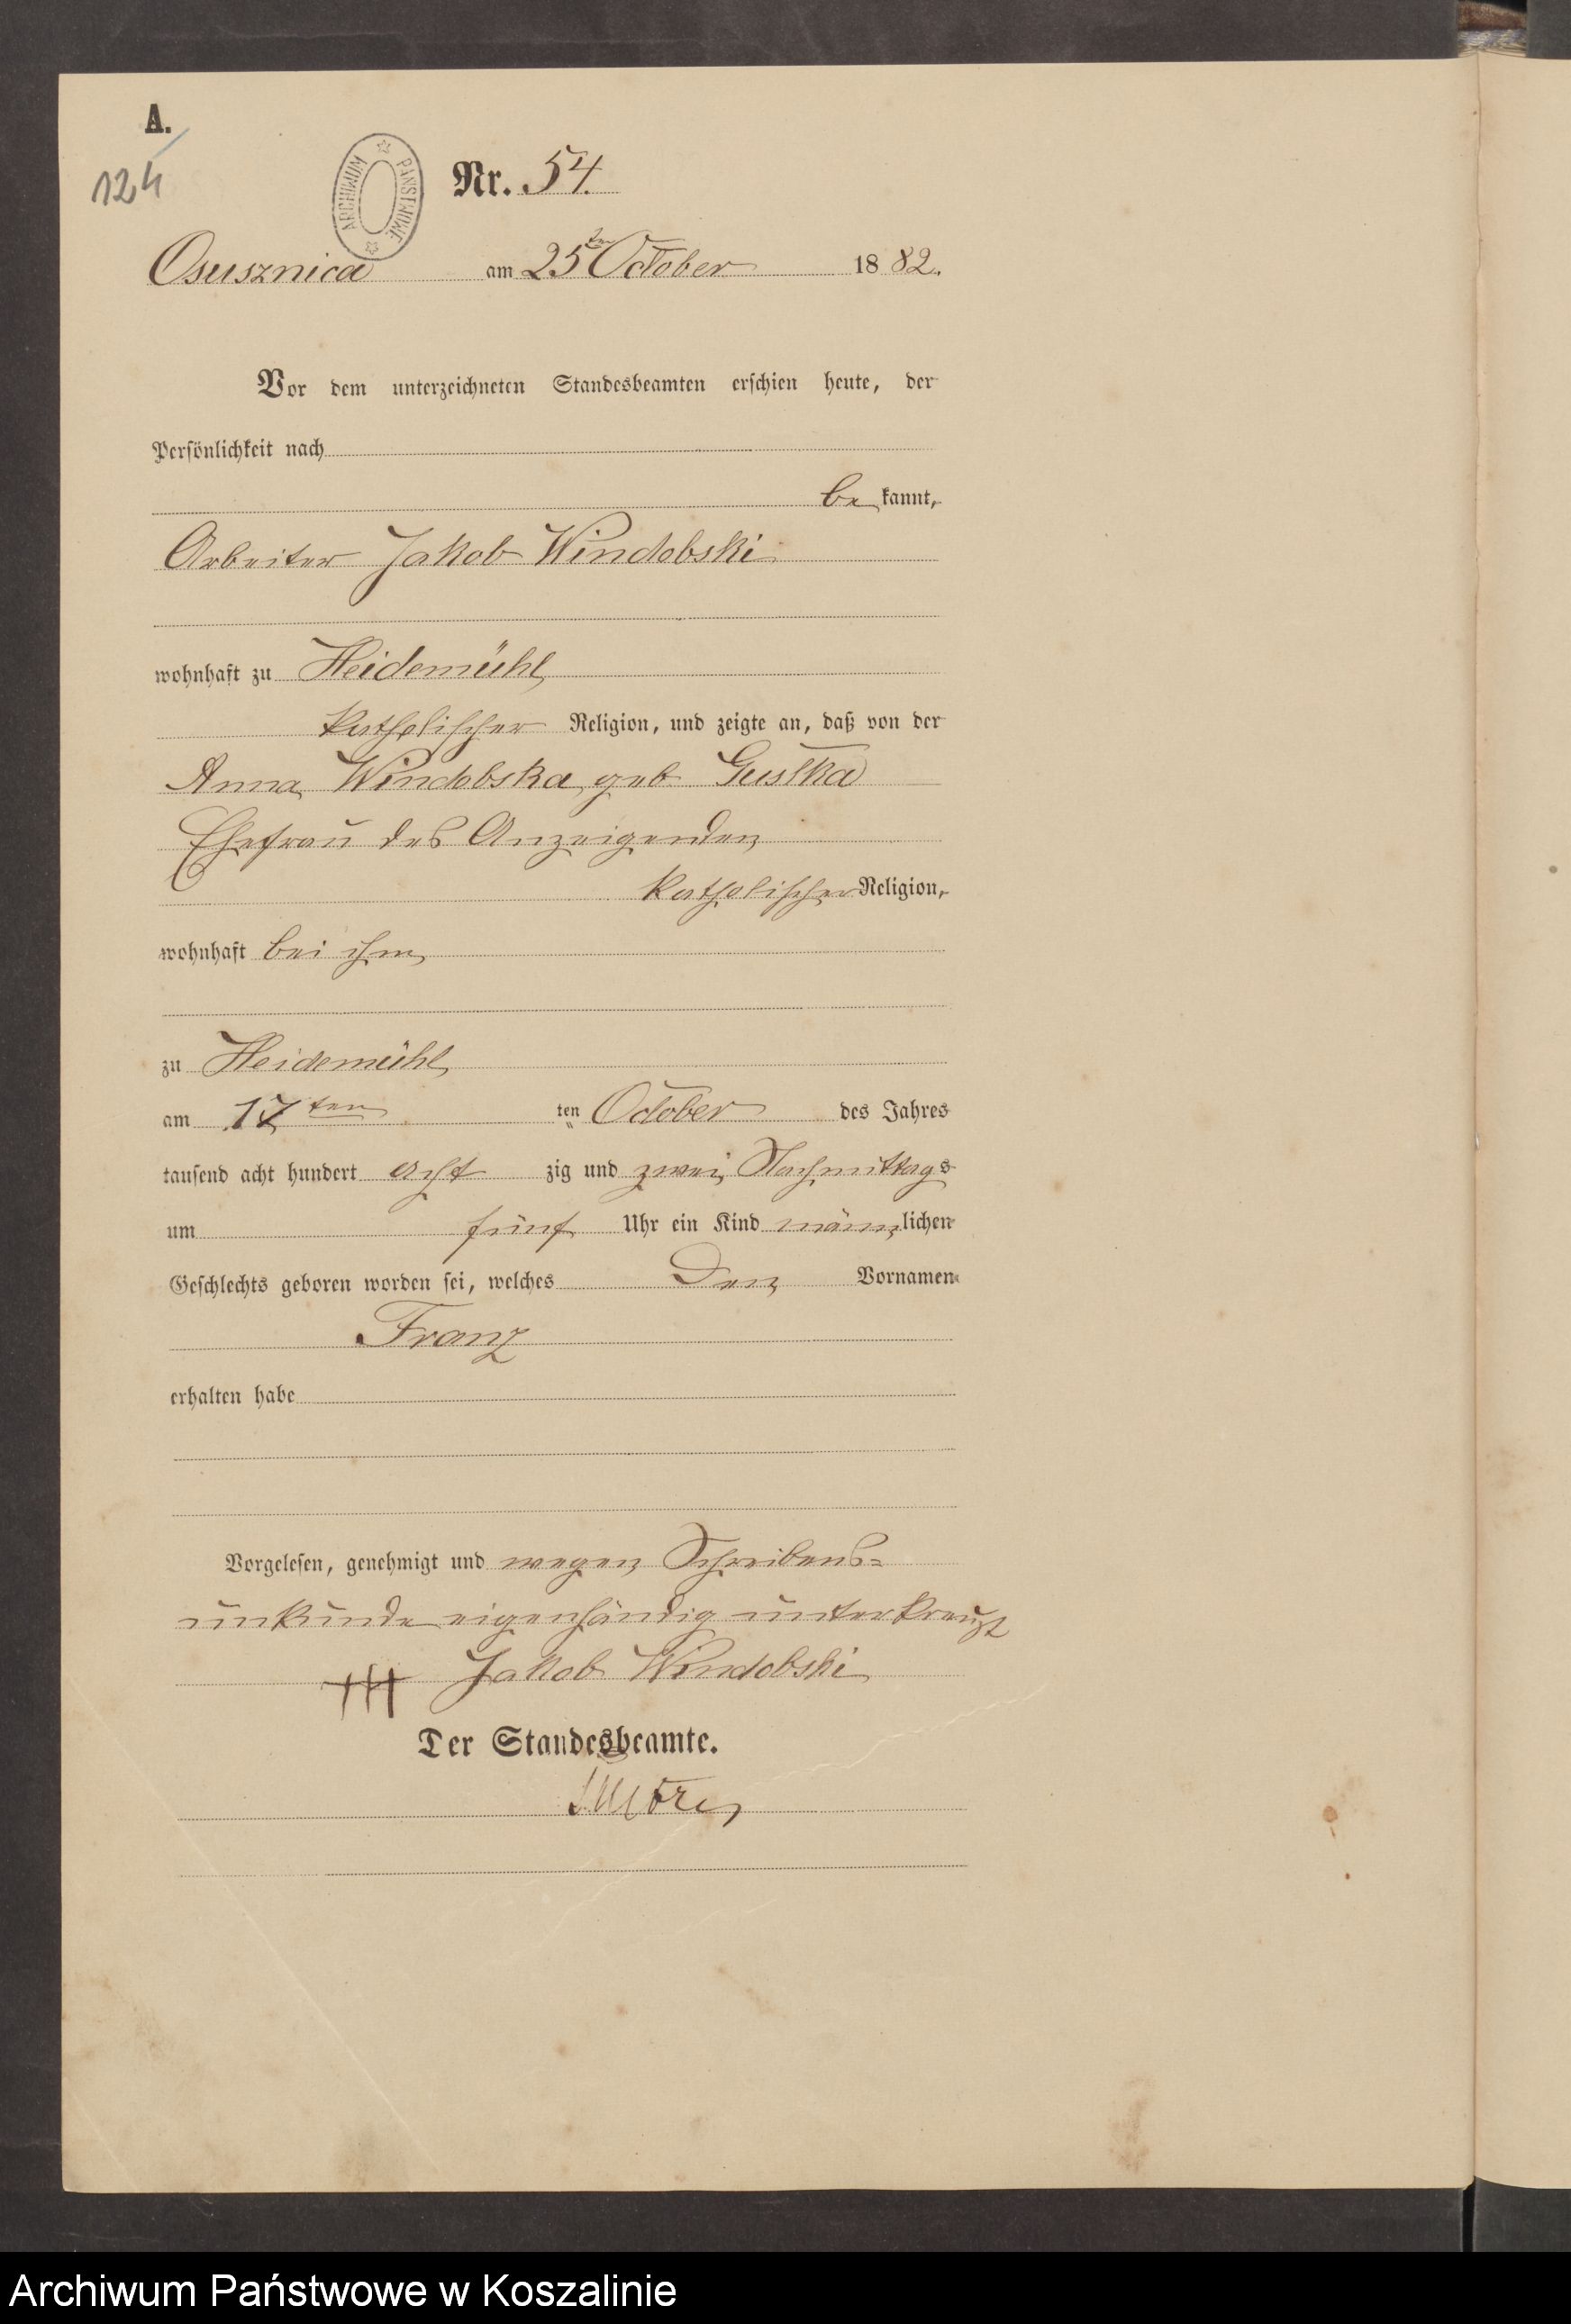 A.
124
ARCHIWUM PAŃSTWOWE
Nr. 54.
Osusznica am 25ten October 1882.
Vor dem unterzeichneten Standesbeamten erschien heute, der
Persönlichkeit nach
be kannt,
Arbeiter Jakob Windobski
wohnhaft zu Heidemühl
katholischer Religion, und zeigte an, daß von der
Anna Windobska geb Gustka
Ehefrau des Anzeigenden
katholischer Religion,
wohnhaft bei ihm
zu Heidemühl
am 17ten ten October des Jahres
tausend acht hundert acht zig und zwei Nachmittags
um fünf Uhr ein Kind männlichen
Geschlechts geboren worden sei, welches den Vornamen
Franz
erhalten habe
Vorgelesen, genehmigt und wegen Schreibens=
unkunde eigenhändig unterkreuzt
+++ Jakob Windobski
Der Standesbeamte.
Archiwum Państwowe w Koszalinie